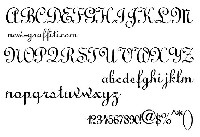 ABCDEFGHIJKLM
new-graffiti.com
NOPQRSTUVWXYZ
abcdefghijklm
nopqrstuvwxyz
1234567890!@$%^*()